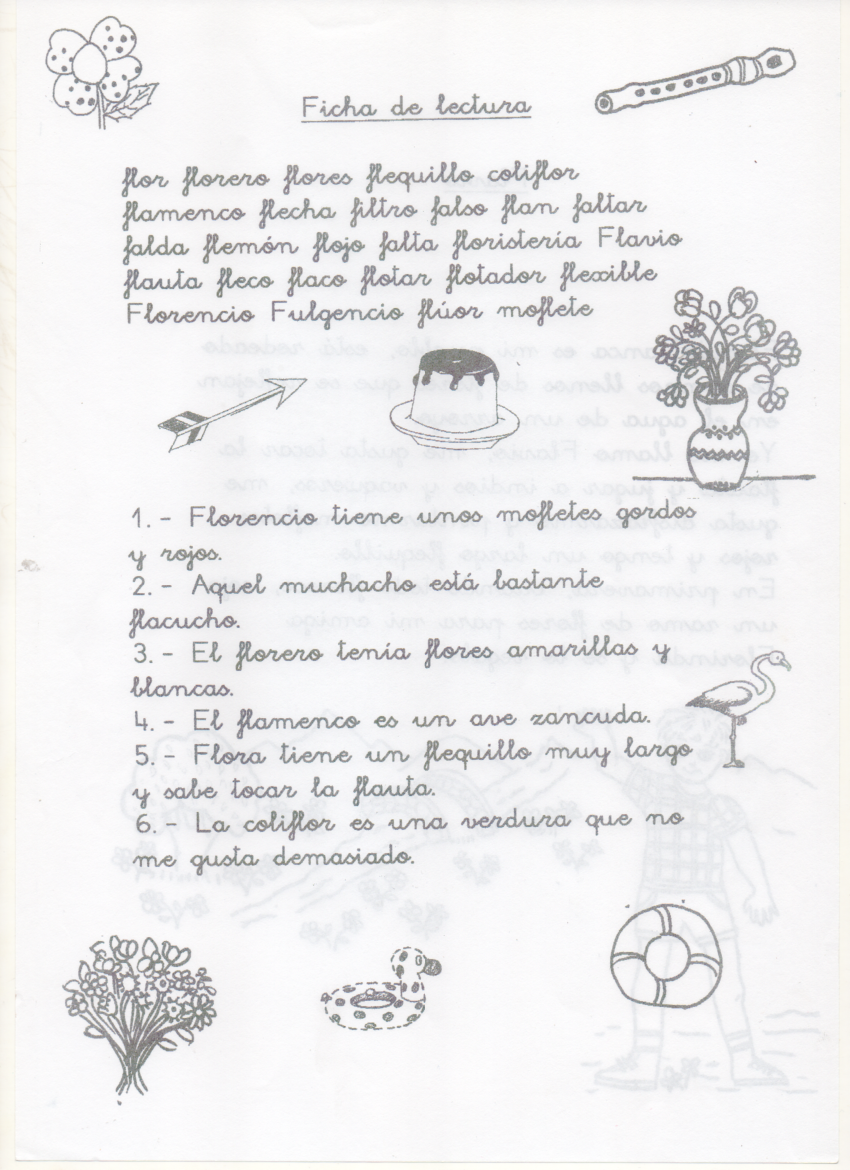 Ficha de lectura
flor florero flores flequillo coliflor
flamenco flecha filtro falso flan faltar
falda flemón flojo falta floristería Flavio
flauta fleco flaco flotar flotador flexible
Florencio Fulgencio flúor moflete
1. - Florencio tiene unos mofletes gordos
y rojos.
2. - Aquel muchacho está bastante
flacucho.
3. - El florero tenía flores amarillas y
blancas.
4. - El flamenco es un ave zancuda.
5. - Flora tiene un flequillo muy largo
y sabe tocar la flauta.
6. - La coliflor es una verdura que no
me gusta demasiado.